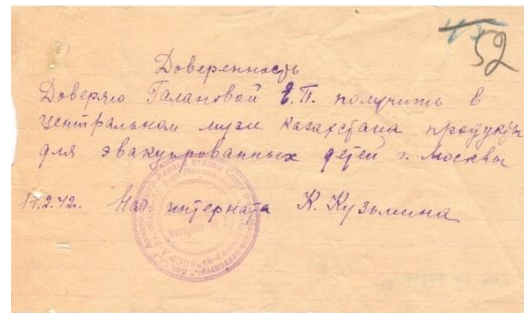 52
Доверенность
Доверяю Галановой Е.П. получить в
центральном музеи казахстана продукты
для эвакуированных детей г. Москвы
17.2.42. Нач. интерната К. Кузьмина